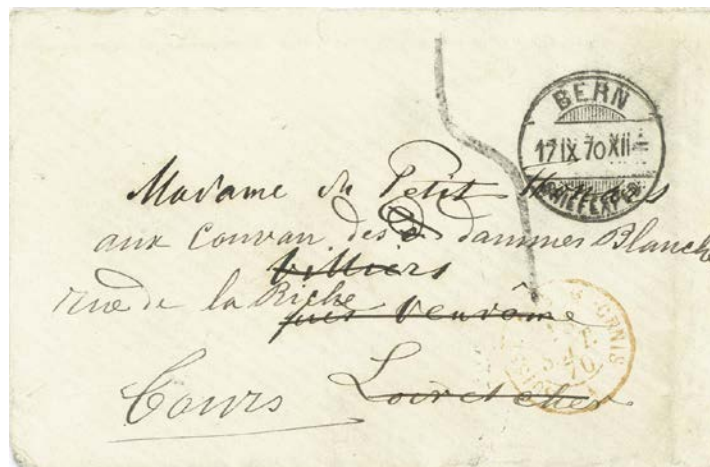 BERN
17 IX 70 XII
BRIEFEXPED
Madame du Petit
aux Convan des dammes Blanche
Villiers
rue de la Riche
par Vendôme
70
Tours Loir et cher